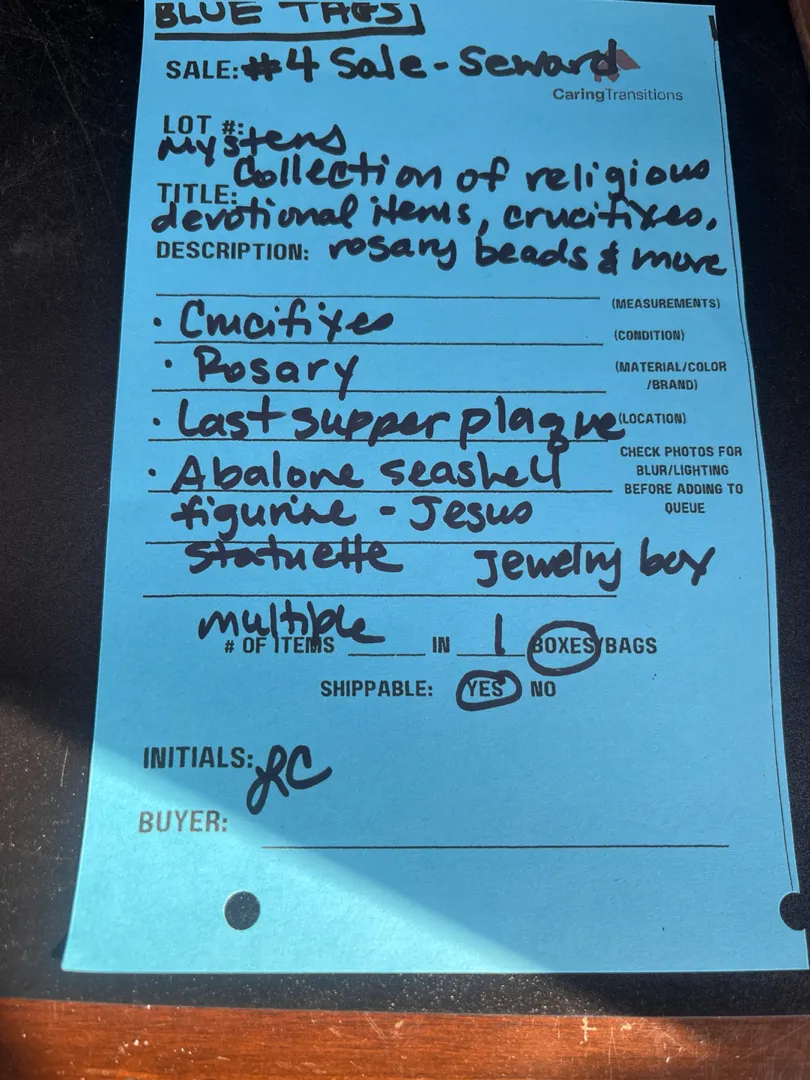 BLUE TAGS
SALE: #4 Sale - Seward
CaringTransitions
LOT #:
Mystens
Collection of religious
TITLE:
devotional items, crucifixes,
DESCRIPTION: rosary beads & more
(MEASUREMENTS)
• Crucifixes
(CONDITION)
• Rosary
(MATERIAL/COLOR
/BRAND)
• Last supper plaque
(LOCATION)
CHECK PHOTOS FOR
BLUR/LIGHTING
BEFORE ADDING TO
QUEUE
• Abalone seashell
figurine - Jesus
statuette Jewelry box
multiple
# OF ITEMS ____ IN 1 BOXES/BAGS
SHIPPABLE: YES NO
INITIALS: LC
BUYER: